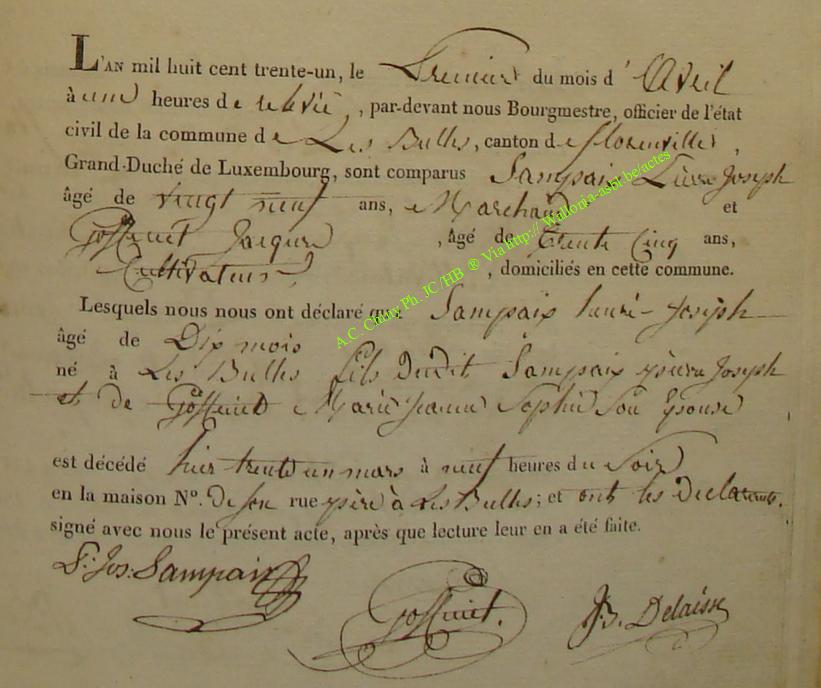 L'AN mil huit cent trente-un, le Premier du mois d'Avril
à une heures de relevée, par-devant nous Bourgmestre, officier de l'état
civil de la commune de Les Bulles, canton de florenville,
Grand-Duché de Luxembourg, sont comparus Sampaix Pierre Joseph
âgé de vingt neuf ans, Marchand et
Goffinet Jacques, âgé de trente Cinq ans,
Cultivateur, domiciliés en cette commune.
Lesquels nous nous ont déclaré que Sampaix henri-Joseph
âgé de Dix mois
né à Les Bulles fils Dudit Sampaix pierre Joseph
et de Goffinet Marie Jeanne Sophie Son Epouse
est décédé hier trente un mars à neuf heures du Soir
en la maison No. de son rue père à Les Bulles; et ont les Déclarants
signé avec nous le présent acte, après que lecture leur en a été faite.
P: Jos: Sampaix
Goffinet.
J.B. Delaisse
A.C. Chiny Ph. JC/HB ® Via http://Wallonia-asbl-be/actes